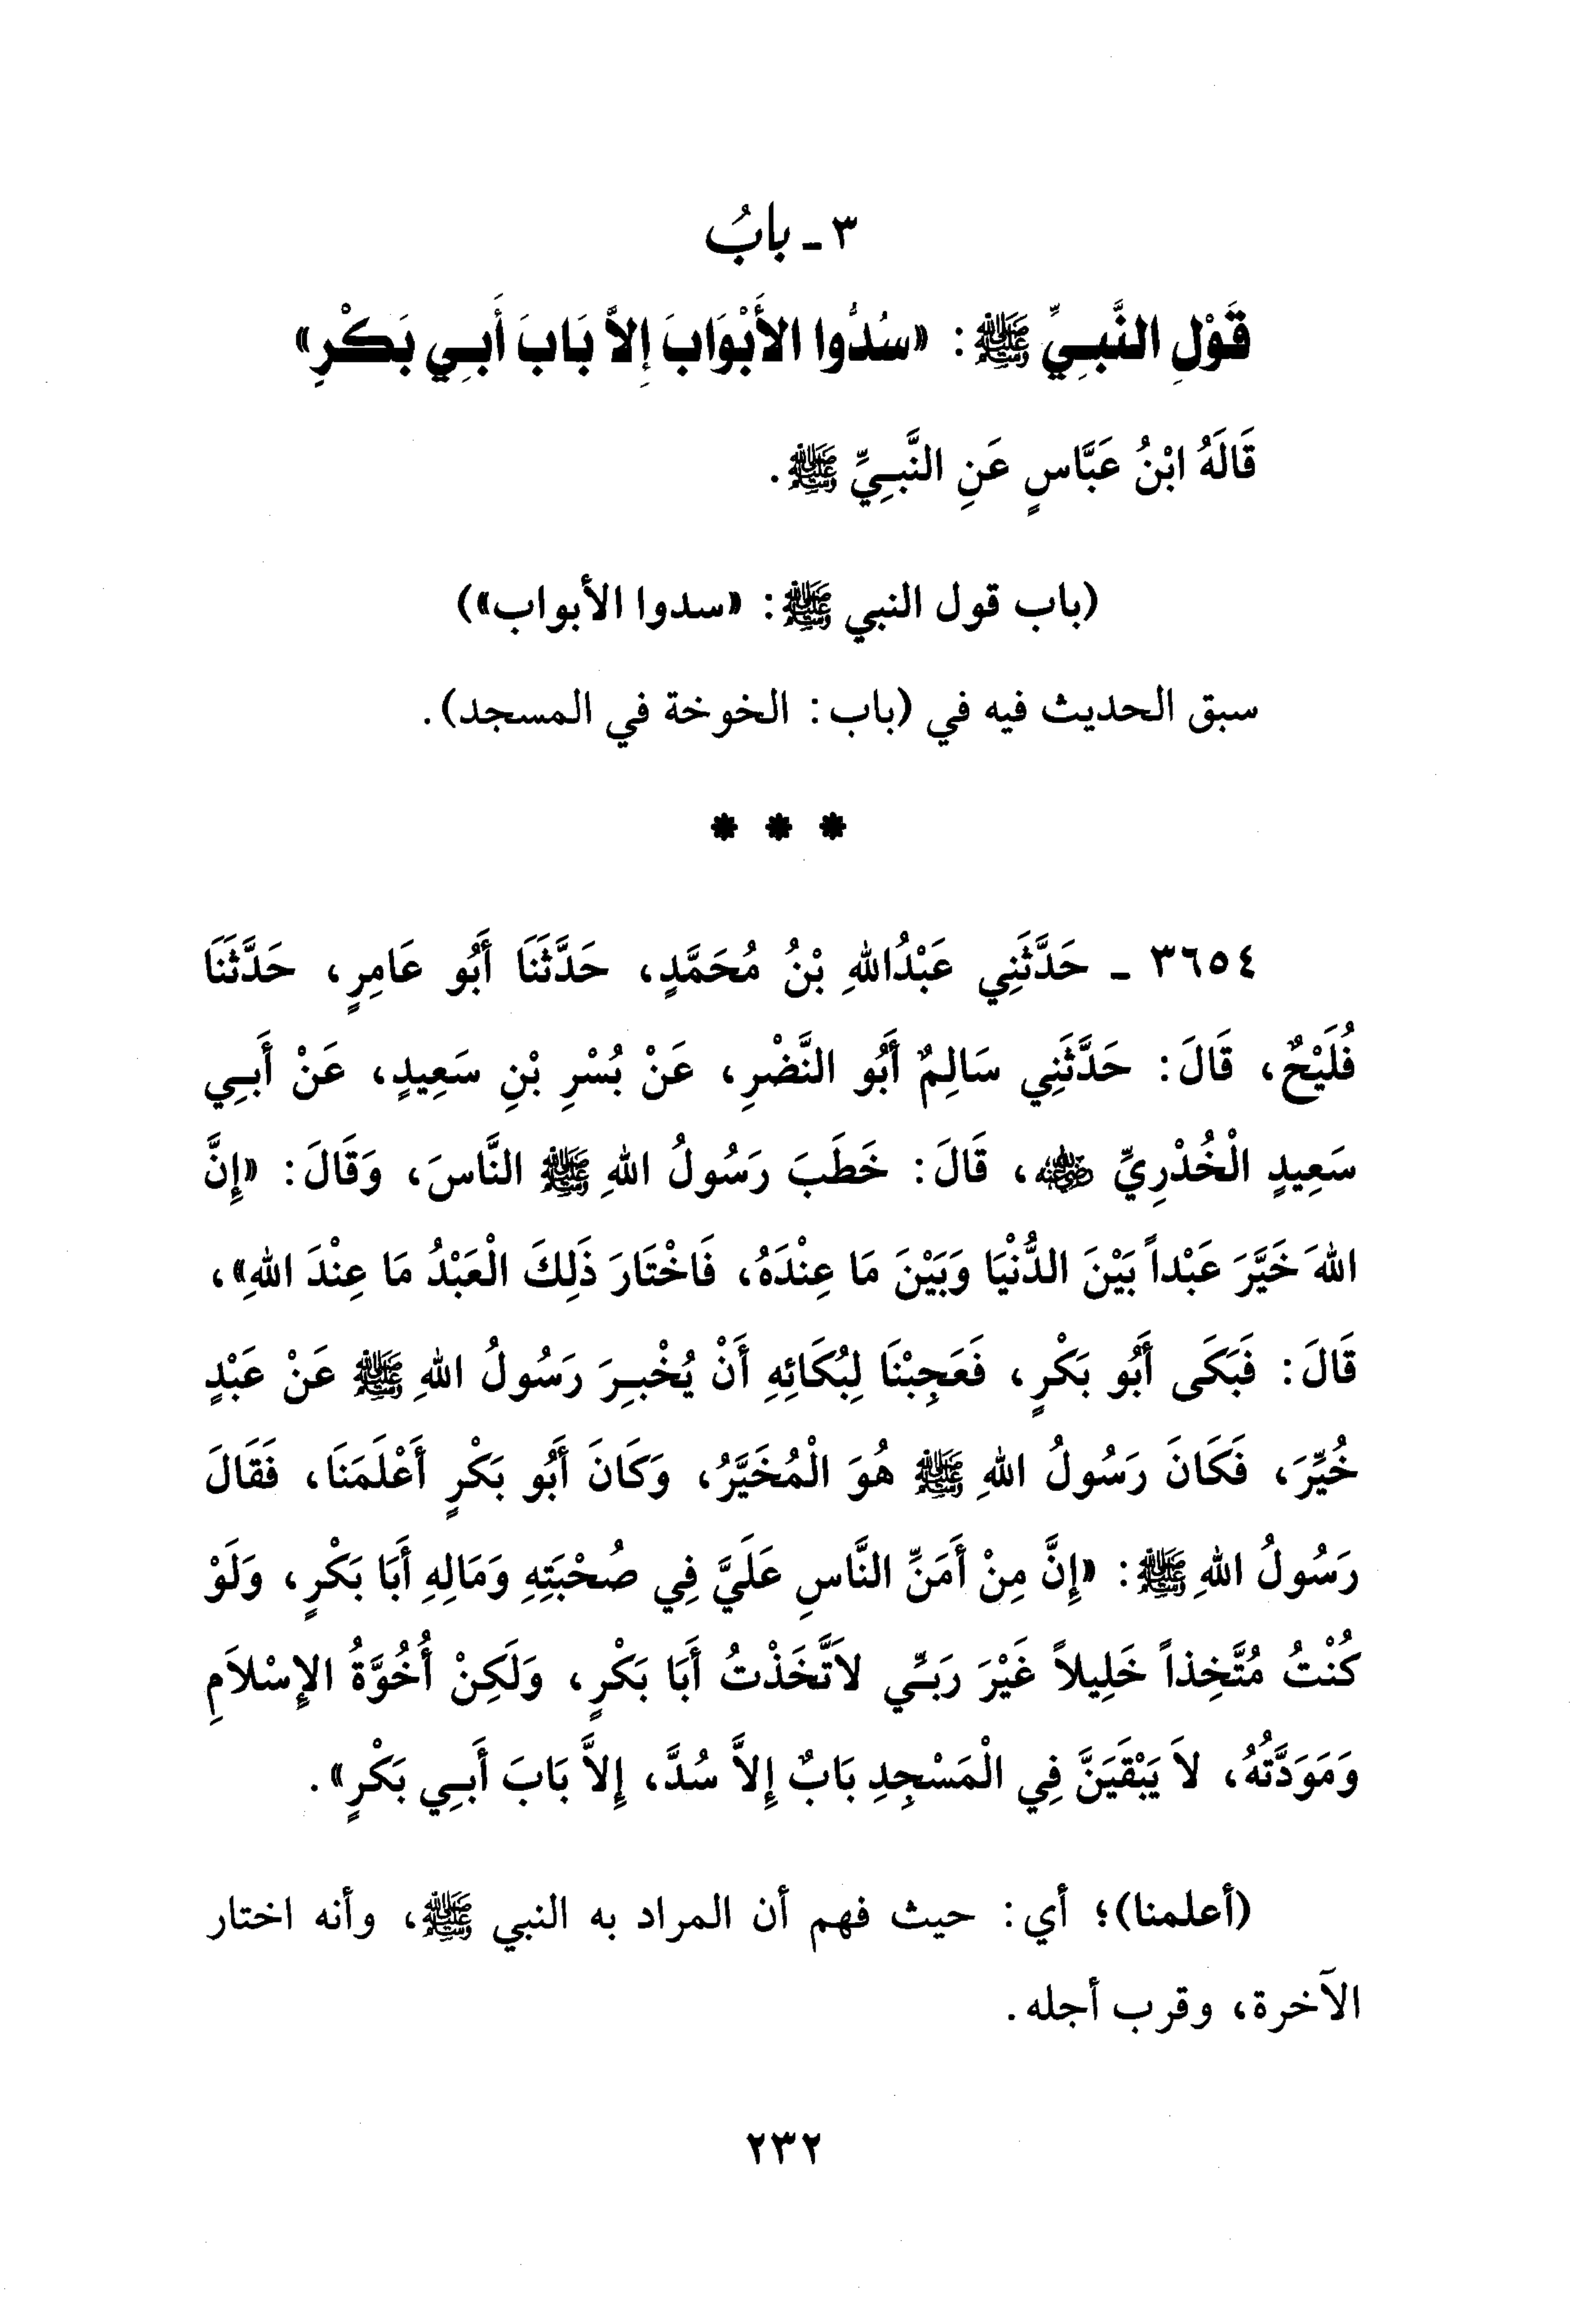 ٣ - بابُ
قَوْلِ النَّبِيِّ ﷺ: «سُدُّوا الأَبْوَابَ إِلاَّ بَابَ أَبِي بَكْرٍ»
قَالَهُ ابْنُ عَبَّاسٍ عَنِ النَّبِيِّ ﷺ.
(باب قول النبي ﷺ: «سدوا الأبواب»)
سبق الحديث فيه في (باب: الخوخة في المسجد).
* * *
٣٦٥٤ - حَدَّثَنِي عَبْدُاللهِ بْنُ مُحَمَّدٍ، حَدَّثَنَا أَبُو عَامِرٍ، حَدَّثَنَا
فُلَيْحٌ، قَالَ: حَدَّثَنِي سَالِمٌ أَبُو النَّضْرِ، عَنْ بُسْرِ بْنِ سَعِيدٍ، عَنْ أَبِي
سَعِيدٍ الْخُدْرِيِّ رضي الله عنه، قَالَ: خَطَبَ رَسُولُ اللهِ ﷺ النَّاسَ، وَقَالَ: «إِنَّ
اللهَ خَيَّرَ عَبْداً بَيْنَ الدُّنْيَا وَبَيْنَ مَا عِنْدَهُ، فَاخْتَارَ ذَلِكَ الْعَبْدُ مَا عِنْدَ اللهِ»،
قَالَ: فَبَكَى أَبُو بَكْرٍ، فَعَجِبْنَا لِبُكَائِهِ أَنْ يُخْبِرَ رَسُولُ اللهِ ﷺ عَنْ عَبْدٍ
خُيِّرَ، فَكَانَ رَسُولُ اللهِ ﷺ هُوَ الْمُخَيَّرُ، وَكَانَ أَبُو بَكْرٍ أَعْلَمَنَا، فَقَالَ
رَسُولُ اللهِ ﷺ: «إِنَّ مِنْ أَمَنِّ النَّاسِ عَلَيَّ فِي صُحْبَتِهِ وَمَالِهِ أَبَا بَكْرٍ، وَلَوْ
كُنْتُ مُتَّخِذاً خَلِيلاً غَيْرَ رَبِّي لاَتَّخَذْتُ أَبَا بَكْرٍ، وَلَكِنْ أُخُوَّةُ الإِسْلاَمِ
وَمَوَدَّتُهُ، لاَ يَبْقَيَنَّ فِي الْمَسْجِدِ بَابٌ إِلاَّ سُدَّ، إِلاَّ بَابَ أَبِي بَكْرٍ».
(أعلمنا)؛ أي: حيث فهم أن المراد به النبي ﷺ، وأنه اختار
الآخرة، وقرب أجله.
٢٣٢